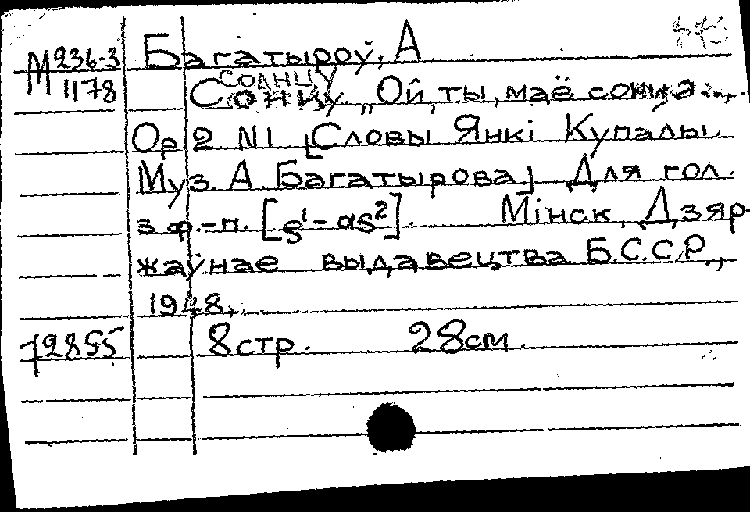 М 236-3 Багатыроў, А
1178 СОЛНЦУ
Сонцу „Ой, ты, маё сонца...
Ор 2 N1 [Словы Янкі Купалы.
Муз. А Багатырова] Для гол.
з ф.-п. [s¹-as²]. Мінск, Дзяр-
жаўнае выдавецтва Б.С.С.Р.,
1948.
72855 8стр. 28см.